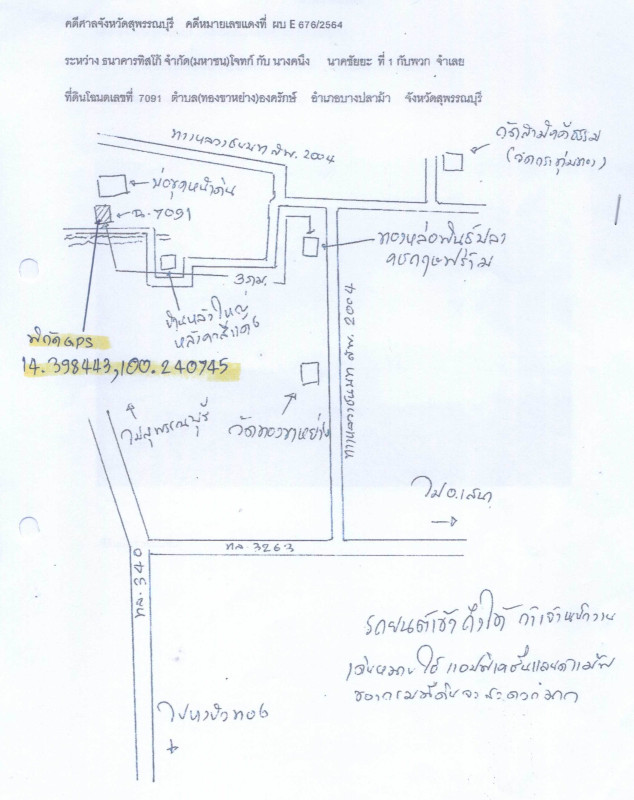 คดีศาลจังหวัดสุพรรณบุรี คดีหมายเลขแดงที่ ผบ E 676/2564
ระหว่าง ธนาคารทิสโก้ จำกัด(มหาชน)โจทก์ กับ นางคนึง นาคชัยยะ ที่ 1 กับพวก จำเลย
ที่ดินโฉนดเลขที่ 7091 ตำบล(ทองขาหย่าง)องครักษ์ อำเภอบางปลาม้า จังหวัดสุพรรณบุรี
ทางหลวงชนบท สพ. 2004
วัดสามัคคีธรรม
บ่อขุดหน้าดิน
ฉ.7091
3 กม.
บ้านหลังใหญ่
หลังคาสีแดง
พิกัด GPS
14.398443,100.240745
ทางหลวงชนบท สพ. 2004
ไปสุพรรณบุรี
วัดทองขาหย่าง
ไป อ.เสนา
ทล. 3263
ทล. 340
รถยนต์เข้าถึงได้ ถ้าเจ้าพนักงาน
ของกรมที่ดินจะสะดวกมาก
ไปบางบัวทอง